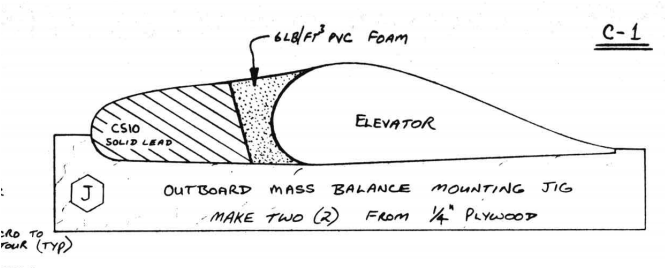 6LB/FT³ PVC FOAM
C-1
CS10
SOLID LEAD
ELEVATOR
J
OUTBOARD MASS BALANCE MOUNTING JIG
MAKE TWO (2) FROM 1/4" PLYWOOD
TO
(TYP)